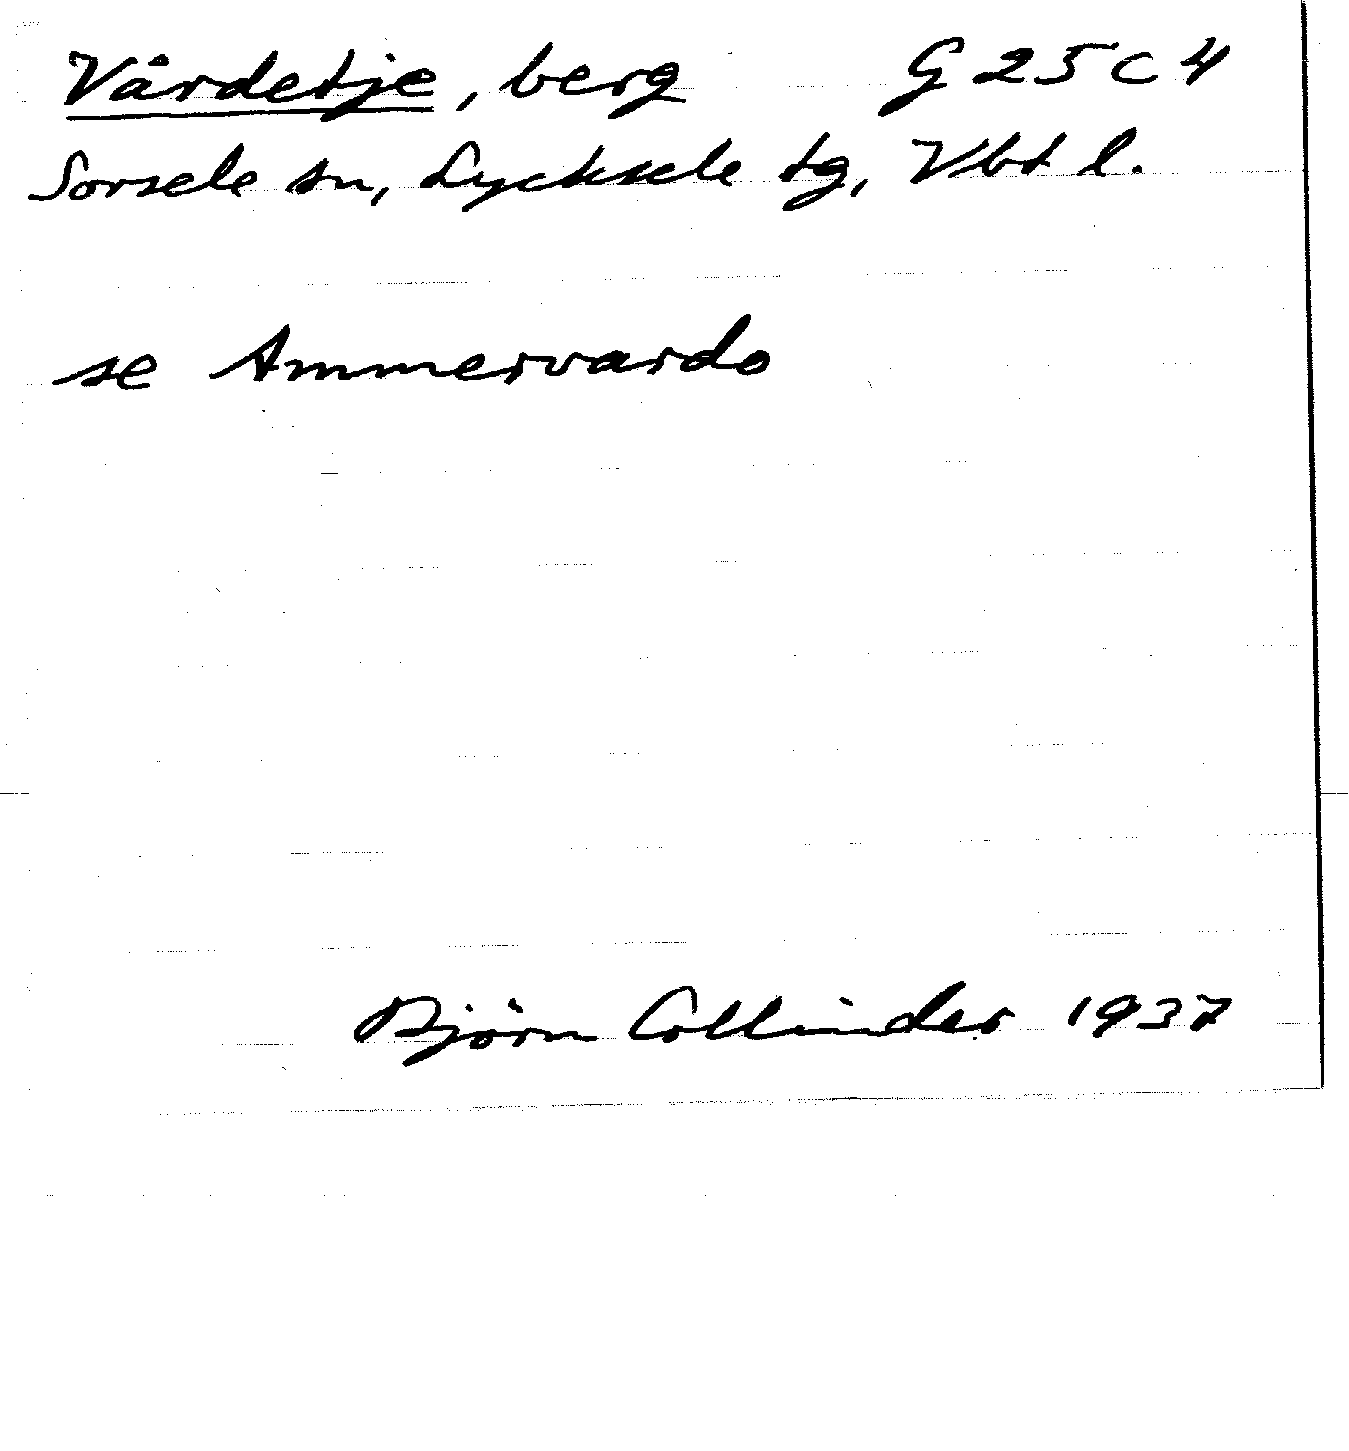 Vårdetje, berg G 25 C 4
Sorsele sn, Lycksele tg, Vbt l.
se Ammervardo
Björn Collinder 1937